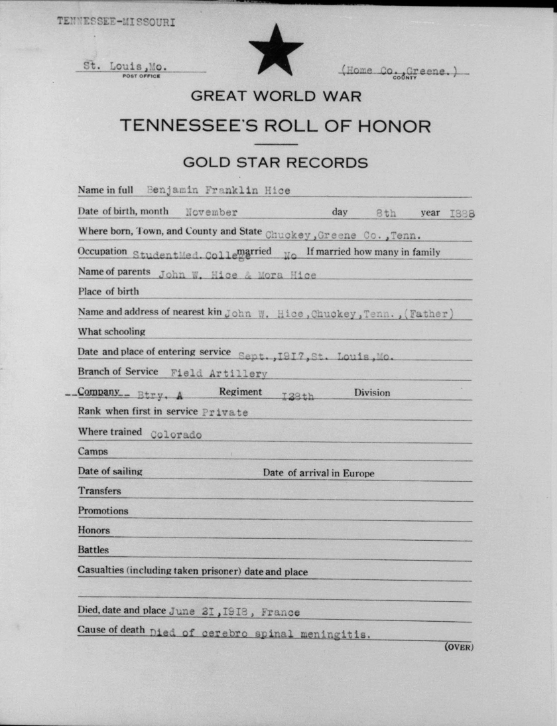 TENNESSEE-MISSOURI
St. Louis,Mo.
POST OFFICE
(Home Co.,Greene.)
COUNTY
GREAT WORLD WAR
TENNESSEE'S ROLL OF HONOR
GOLD STAR RECORDS
Name in full Benjamin Franklin Hice
Date of birth, month November day 8th year 1888
Where born, Town, and County and State Chuckey,Greene Co.,Tenn.
Occupation StudentMed.College married No If married how many in family
Name of parents John W. Hice & Mora Hice
Place of birth
Name and address of nearest kin John W. Hice,Chuckey,Tenn.,(Father)
What schooling
Date and place of entering service Sept.,1917,St. Louis,Mo.
Branch of Service Field Artillery
Company Btry. A Regiment 128th Division
Rank when first in service Private
Where trained Colorado
Camps
Date of sailing Date of arrival in Europe
Transfers
Promotions
Honors
Battles
Casualties (including taken prisoner) date and place
Died, date and place June 21,1918, France
Cause of death Died of cerebro spinal meningitis.
(OVER)